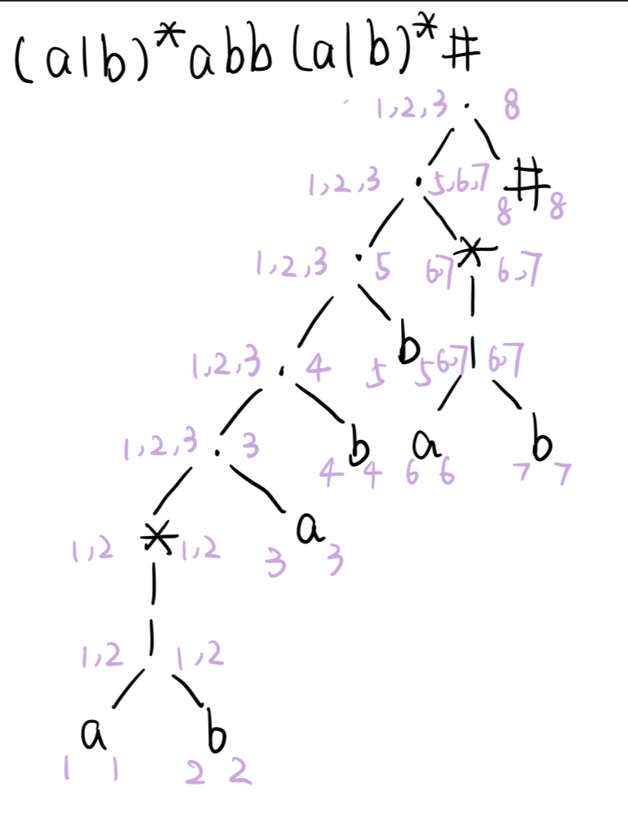 (a|b)*abb(a|b)*#
1,2,3 · 8
1,2,3 · 5,6,7 #
8 8
1,2,3 · 5 6,7 * 6,7
1,2,3 · 4 5 b 5 6,7 | 6,7
1,2,3 · 3 4 b 4 6 a 6 7 b 7
1,2 * 1,2 3 a 3
1,2 | 1,2
a b
1 1 2 2